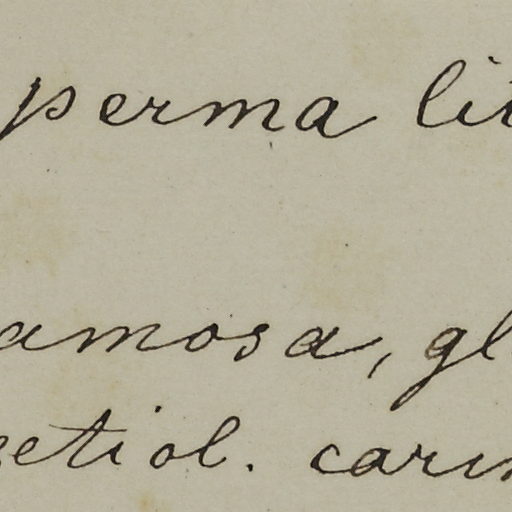 perma lit
amosa, gl
petiol. carin